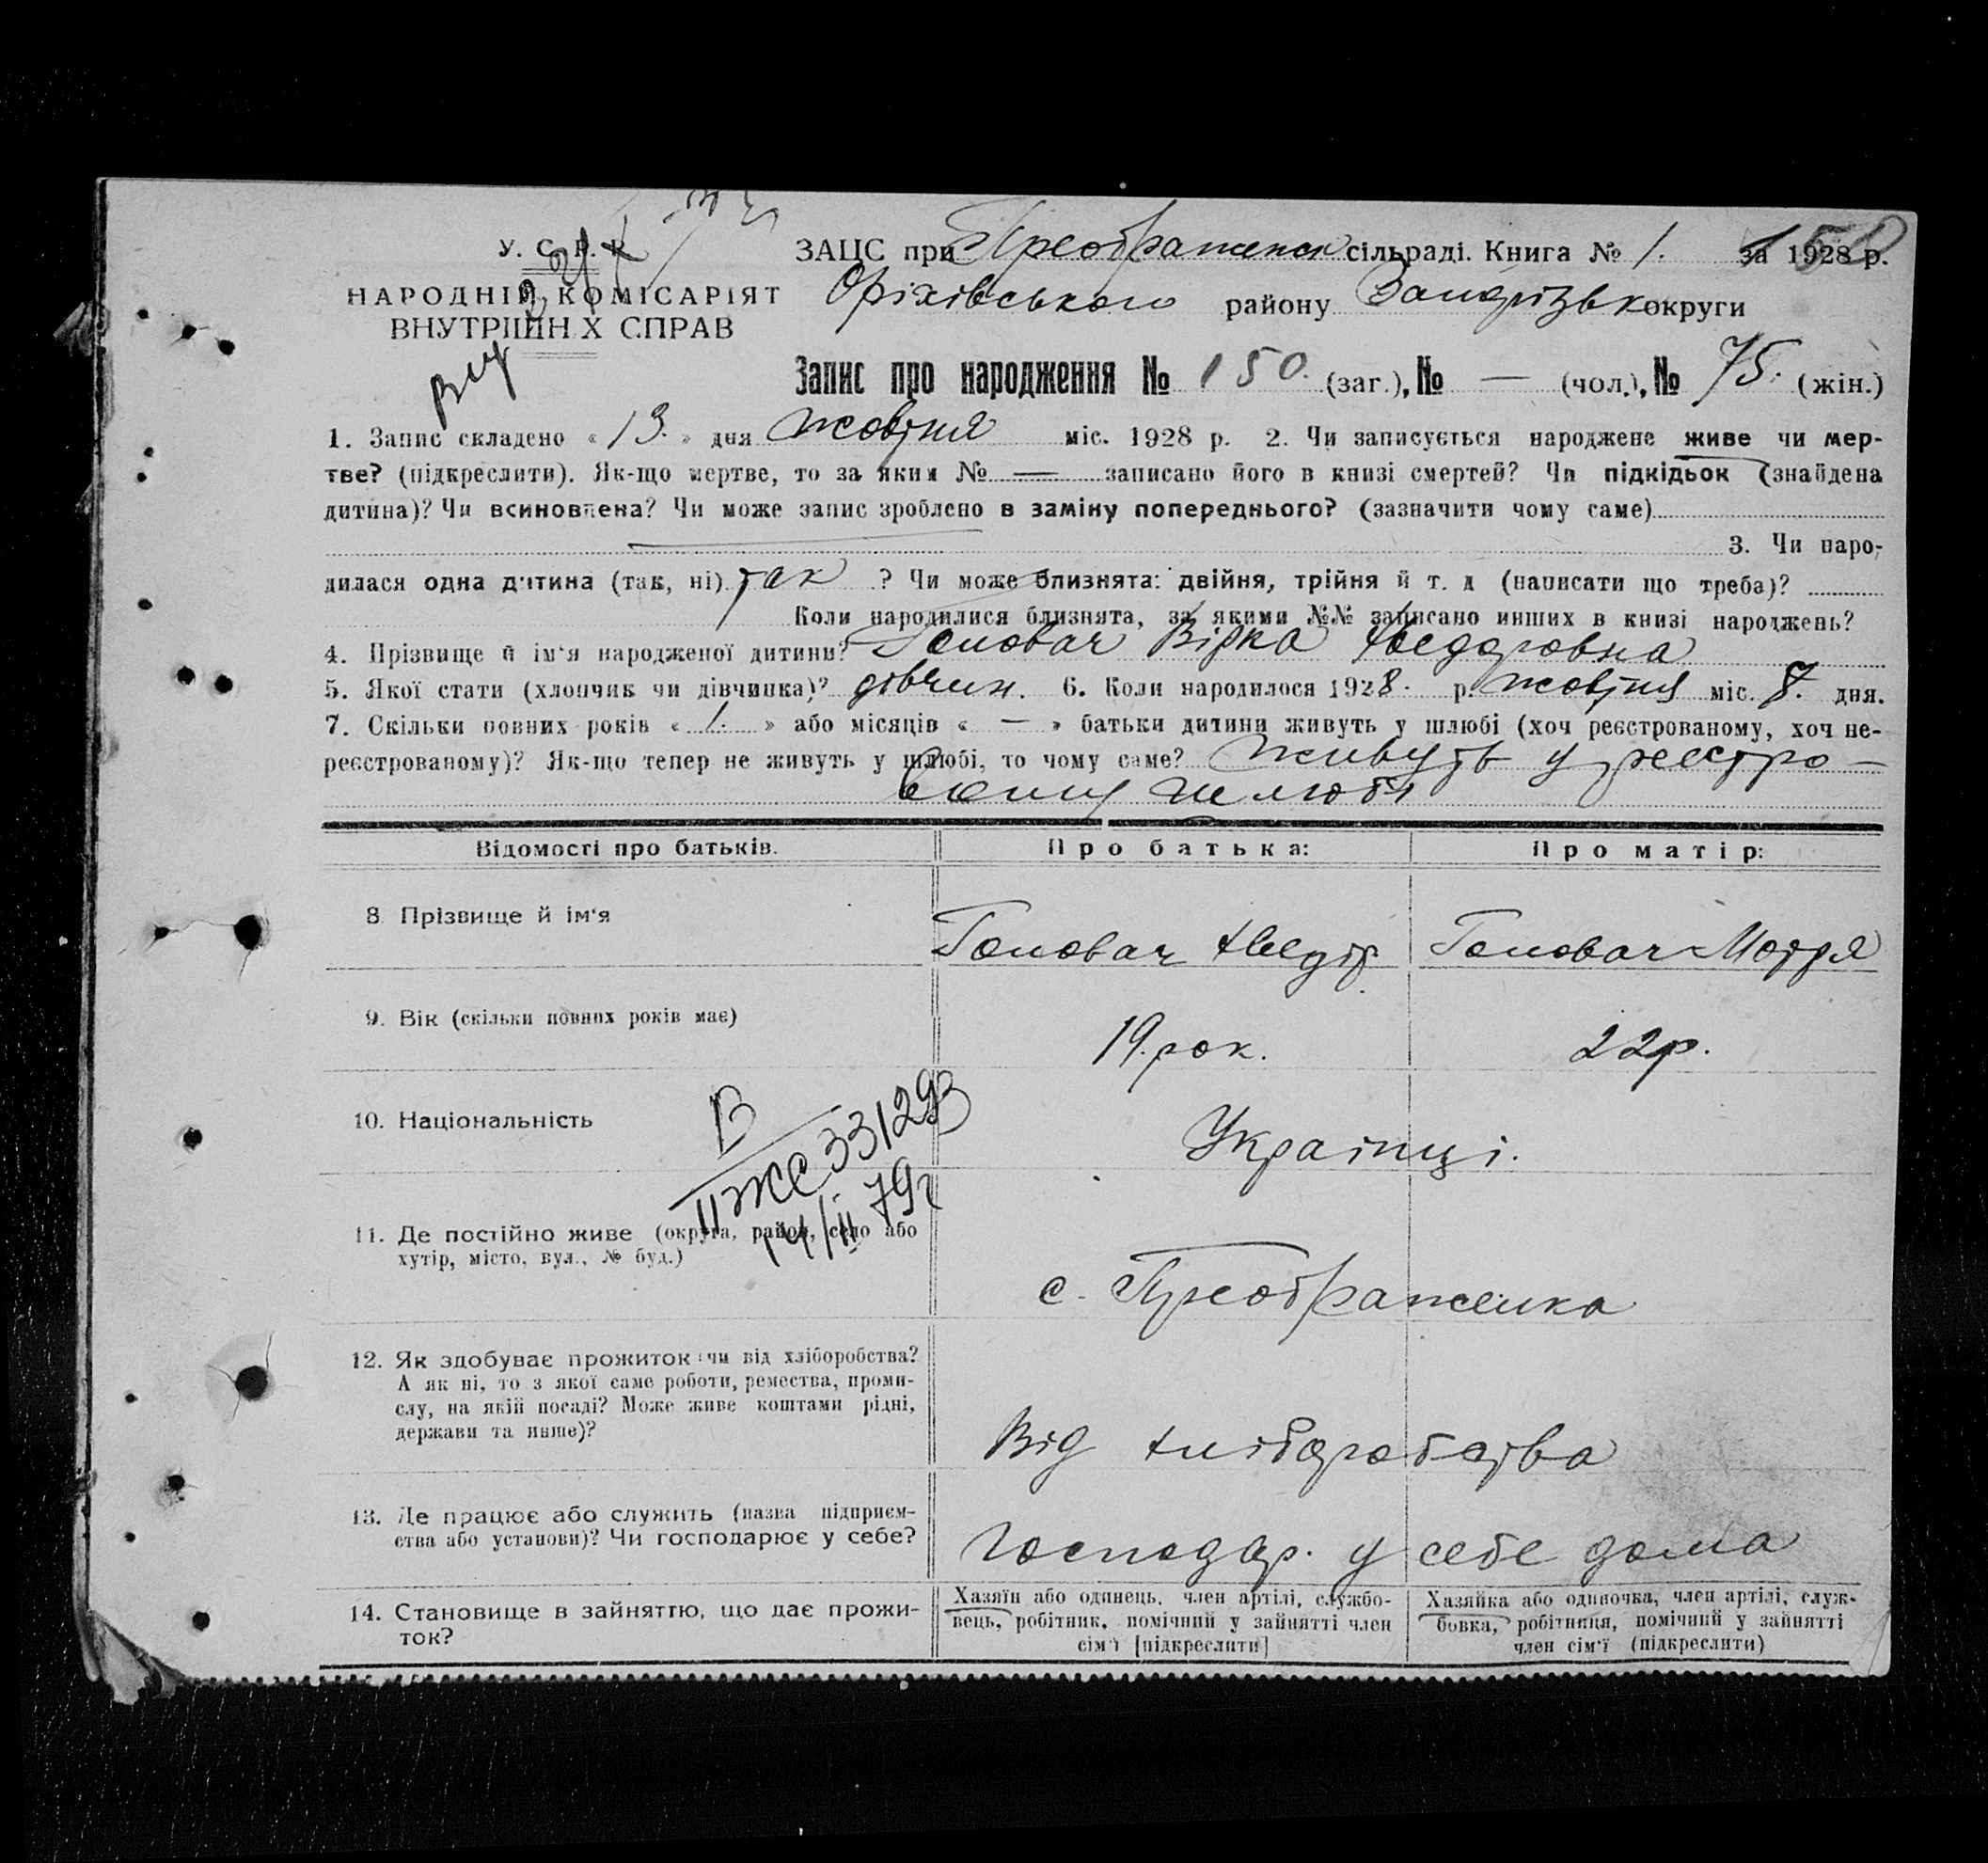 У. С. Р. Р.
ЗАЦС при Преображенск сільраді. Книга № 1. за 1928 р.
НАРОДНІЙ КОМІСАРІЯТ
Оріхівського району Запорізьк округи
ВНУТРІШНІХ СПРАВ
Запис про народження № 150. (заг.), № — (чол.), № 75. (жін.)
1. Запис складено « 13. » дня жовтня міс. 1928 р. 2. Чи записується народжене живе чи мер-
тве? (підкреслити). Як-що мертве, то за яким № — записано його в книзі смертей? Чи підкідьок (знайдена
дитина)? Чи всиновлена? Чи може запис зроблено в заміну попереднього? (зазначити чому саме)
3. Чи наро-
дилася одна дитина (так, ні) так ? Чи може близнята: двійня, трійня й т. д (написати що треба)?
Коли народилися близнята, за якими №№ записано инших в книзі народжень?
4. Прізвище й ім'я народженої дитини? Головач Вірка Хведоровна
5. Якої стати (хлопчик чи дівчинка)? дівчин. 6. Коли народилося 1928. р. жовтня міс. 7. дня.
7. Скільки повних років « 1. » або місяців « — » батьки дитини живуть у шлюбі (хоч реєстрованому, хоч не-
реєстрованому)? Як-що тепер не живуть у шлюбі, то чому саме? живуть у реєстро-
ваному шлюбі
Відомості про батьків. Про батька: Про матір:
8 Прізвище й ім'я Головач Хведір Головач Мотря
9. Вік (скільки повних років має) 19. рок. 22 р.
10. Національність Українці.
В
ІІ ЖС 331293
14/II 79 г
11. Де постійно живе (округа, район, село або
хутір, місто, вул., № буд.)
с. Преображенка
12. Як здобуває прожиток: чи від хліборобства?
А як ні, то з якої саме роботи, ремества, проми-
слу, на якій посаді? Може живе коштами рідні,
держави та инше)?
Від хліборобства
13. Де працює або служить (назва підприєм-
ства або установи)? Чи господарює у себе?
господар. у себе дома
14. Становище в зайняттю, що дає прожи-
ток?
Хазяїн або одинець, член артілі, службо-
вець, робітник, помічний у зайнятті член
сім'ї [підкреслити]
Хазяйка або одиночка, член артілі, служ-
бовка, робітниця, помічний у зайнятті
член сім'ї (підкреслити)